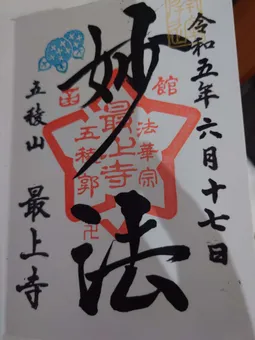 令和五年六月十七日
函館
妙法
法華宗
最上寺
五稜郭
卍
五稜山 最上寺